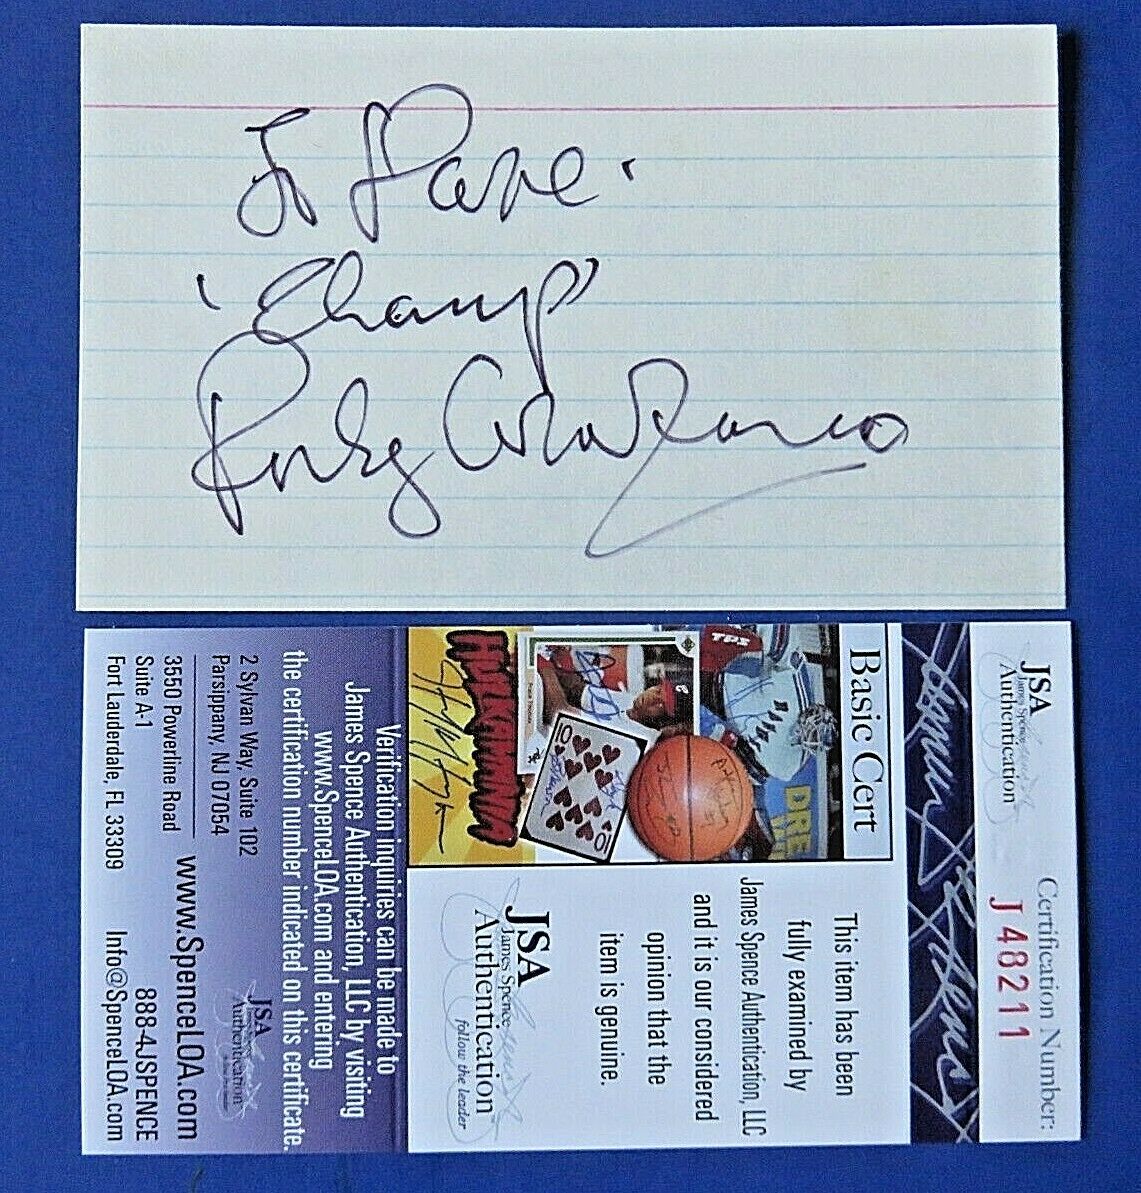 To Dave.
'Champ'
Rocky Graziano
JSA
James Spence
Authentication
Certification Number:
J48211
Basic Cert
This item has been
fully examined by
James Spence Authentication, LLC
and it is our considered
opinion that the
item is genuine.
HULKAMANIA
JSA
James Spence
Authentication
follow the leader
Verification inquiries can be made to
James Spence Authentication, LLC by visiting
www.SpenceLOA.com and entering
the certification number indicated on this certificate.
2 Sylvan Way, Suite 102
Parsippany, NJ 07054
3550 Powerline Road
Suite A-1
Fort Lauderdale, FL 33309
JSA
Authentication
www.SpenceLOA.com
888-4JSPENCE
Info@SpenceLOA.com